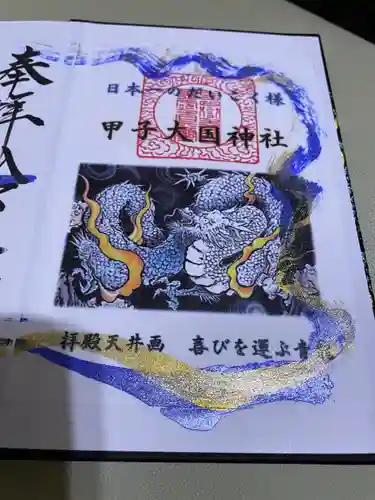 日本一のだいこく様
甲子大国神社
拝殿天井画 喜びを運ぶ青
奉拝